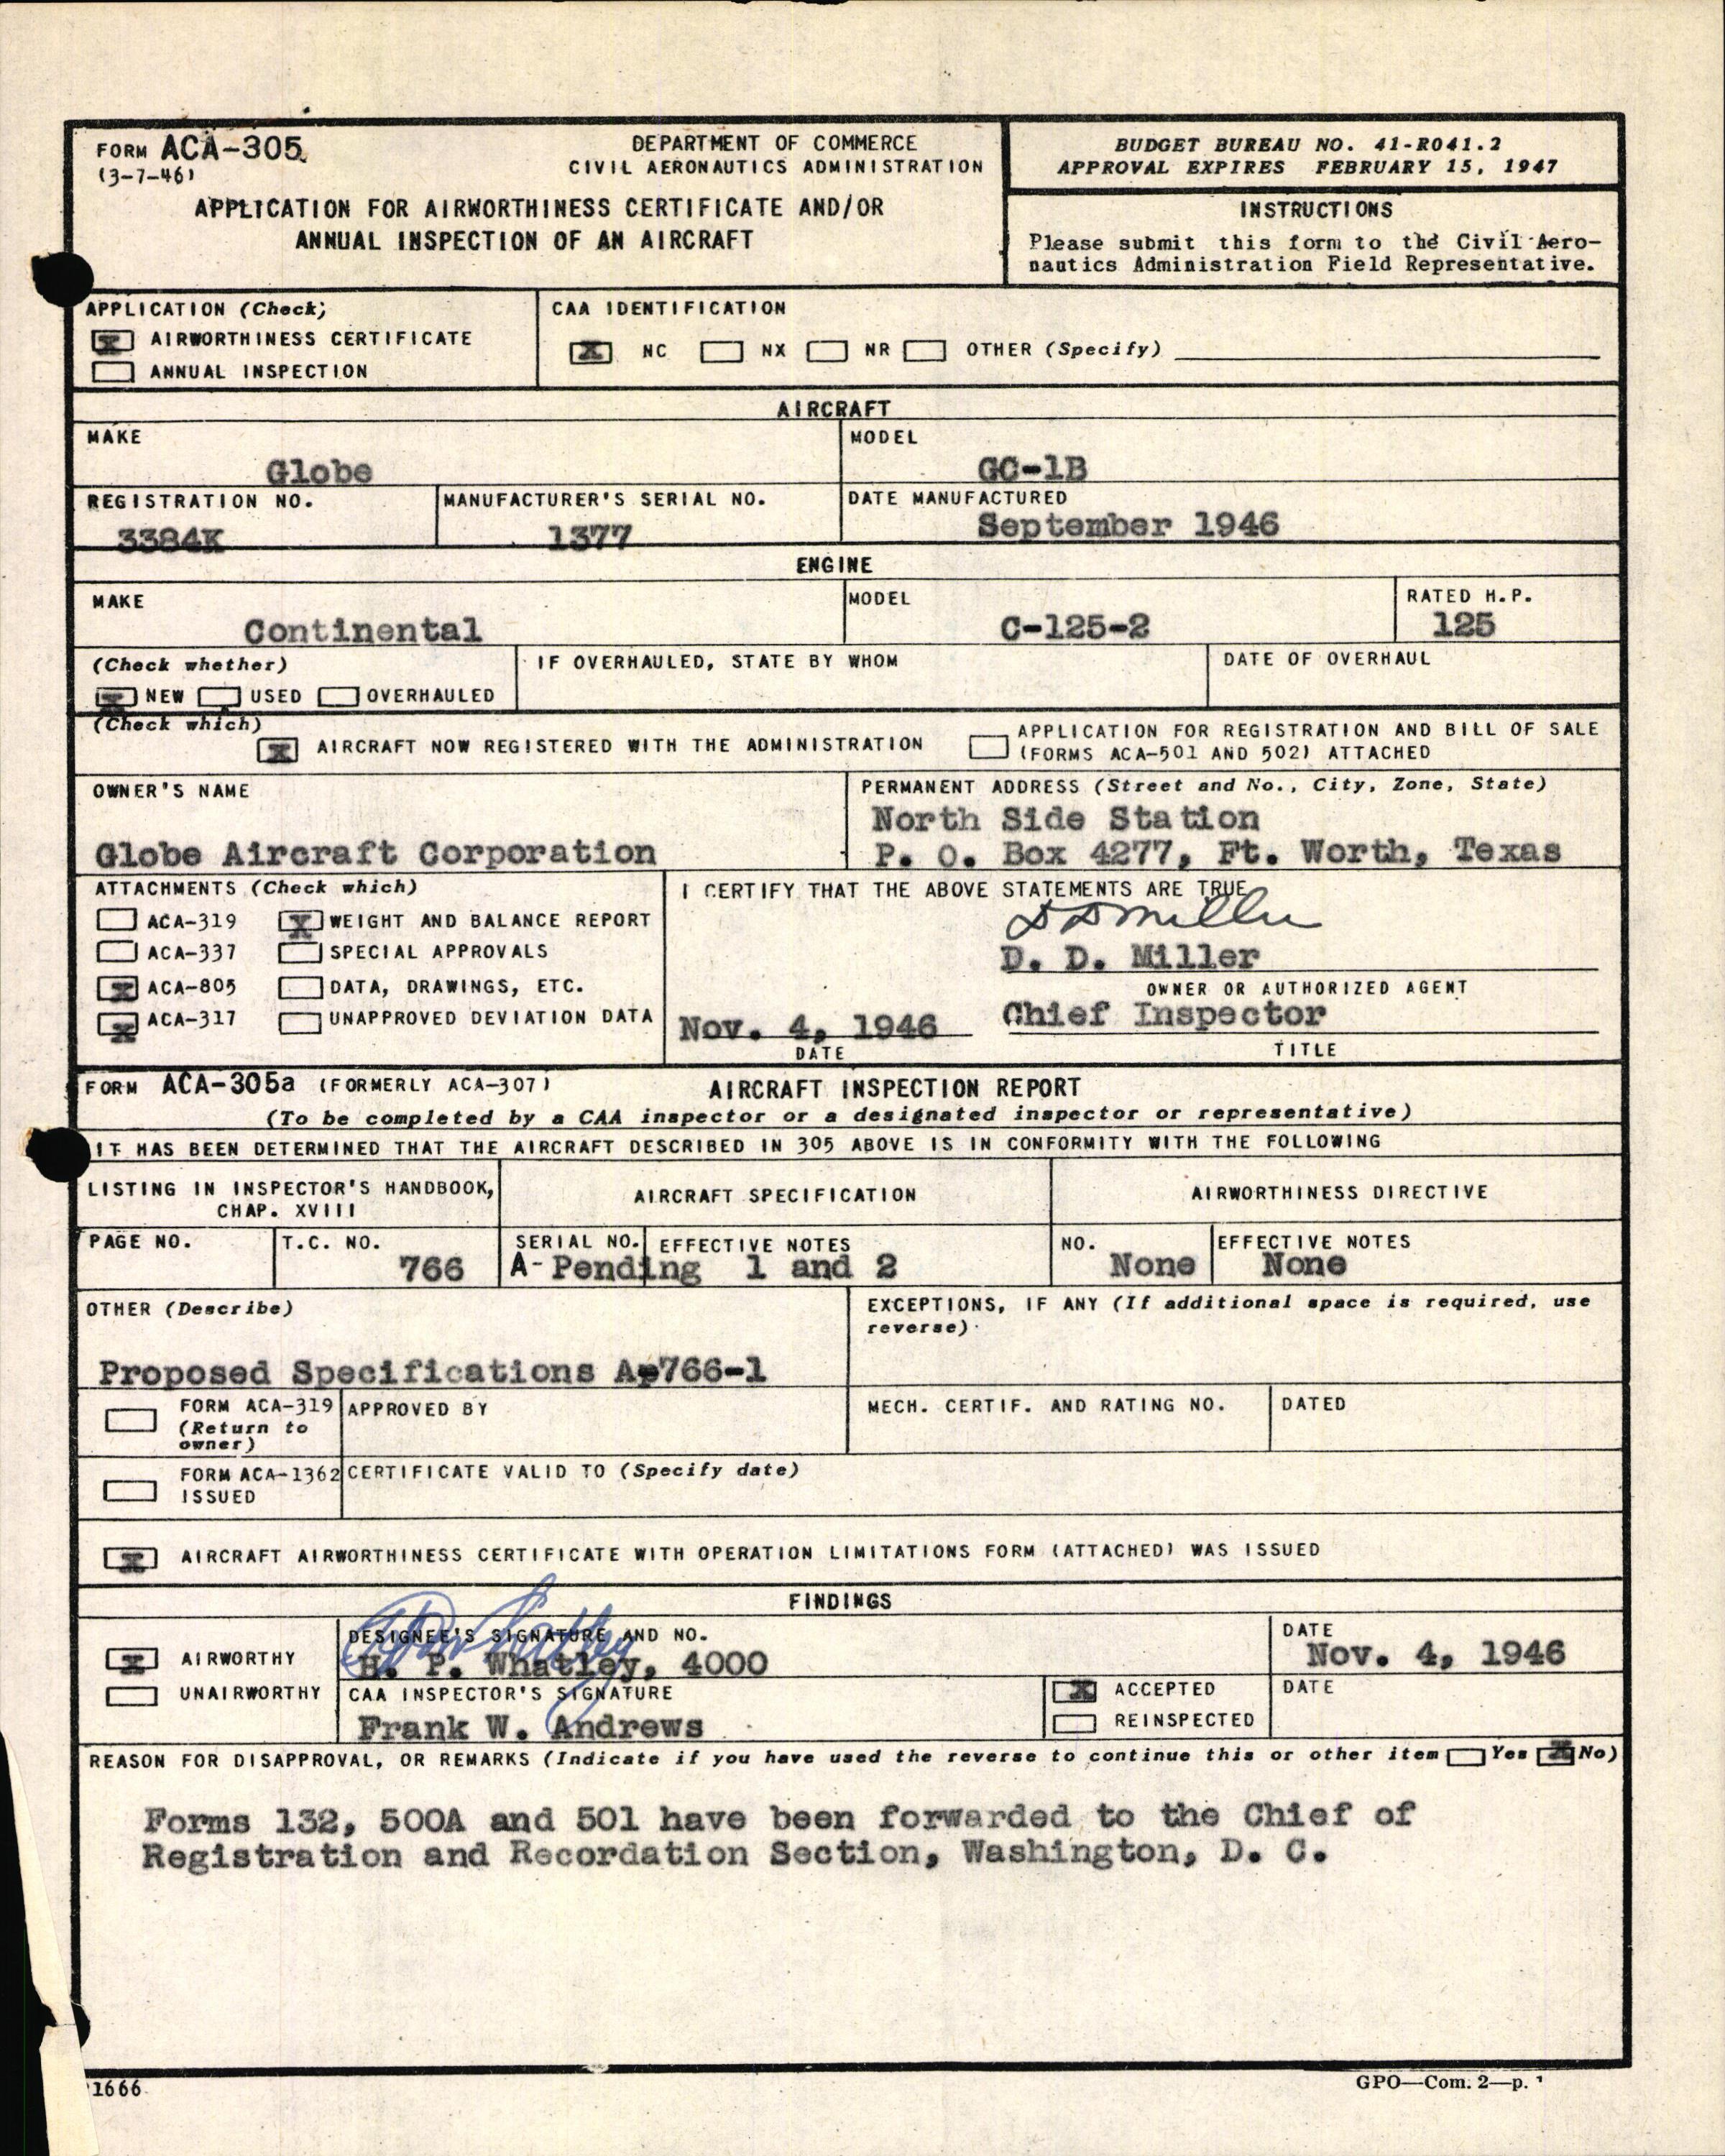 FORM ACA-305
(3-7-46)
DEPARTMENT OF COMMERCE
CIVIL AERONAUTICS ADMINISTRATION
APPLICATION FOR AIRWORTHINESS CERTIFICATE AND/OR
ANNUAL INSPECTION OF AN AIRCRAFT
BUDGET BUREAU NO. 41-R041.2
APPROVAL EXPIRES FEBRUARY 15, 1947
INSTRUCTIONS
Please submit this form to the Civil Aero-
nautics Administration Field Representative.
APPLICATION (Check)
X AIRWORTHINESS CERTIFICATE
ANNUAL INSPECTION
CAA IDENTIFICATION
X NC NX NR OTHER (Specify)
AIRCRAFT
MAKE
Globe
MODEL
GC-1B
REGISTRATION NO.
3384K
MANUFACTURER'S SERIAL NO.
1377
DATE MANUFACTURED
September 1946
ENGINE
MAKE
Continental
MODEL
C-125-2
RATED H.P.
125
(Check whether)
X NEW USED OVERHAULED
IF OVERHAULED, STATE BY WHOM
DATE OF OVERHAUL
(Check which)
X AIRCRAFT NOW REGISTERED WITH THE ADMINISTRATION
APPLICATION FOR REGISTRATION AND BILL OF SALE
(FORMS ACA-501 AND 502) ATTACHED
OWNER'S NAME
Globe Aircraft Corporation
PERMANENT ADDRESS (Street and No., City, Zone, State)
North Side Station
P. O. Box 4277, Ft. Worth, Texas
ATTACHMENTS (Check which)
ACA-319 X WEIGHT AND BALANCE REPORT
ACA-337 SPECIAL APPROVALS
X ACA-805 DATA, DRAWINGS, ETC.
X ACA-317 UNAPPROVED DEVIATION DATA
I CERTIFY THAT THE ABOVE STATEMENTS ARE TRUE
D D Miller
D. D. Miller
OWNER OR AUTHORIZED AGENT
Nov. 4, 1946 Chief Inspector
DATE TITLE
FORM ACA-305a (FORMERLY ACA-307) AIRCRAFT INSPECTION REPORT
(To be completed by a CAA inspector or a designated inspector or representative)
IT HAS BEEN DETERMINED THAT THE AIRCRAFT DESCRIBED IN 305 ABOVE IS IN CONFORMITY WITH THE FOLLOWING
LISTING IN INSPECTOR'S HANDBOOK,
CHAP. XVIII
AIRCRAFT SPECIFICATION
AIRWORTHINESS DIRECTIVE
PAGE NO.
T.C. NO.
766
SERIAL NO. EFFECTIVE NOTES
A- Pending 1 and 2
NO.
None
EFFECTIVE NOTES
None
OTHER (Describe)
Proposed Specifications A-766-1
EXCEPTIONS, IF ANY (If additional space is required, use
reverse)
FORM ACA-319
(Return to
owner)
APPROVED BY
MECH. CERTIF. AND RATING NO.
DATED
FORM ACA-1362
ISSUED
CERTIFICATE VALID TO (Specify date)
X AIRCRAFT AIRWORTHINESS CERTIFICATE WITH OPERATION LIMITATIONS FORM (ATTACHED) WAS ISSUED
FINDINGS
X AIRWORTHY
UNAIRWORTHY
DESIGNEE'S SIGNATURE AND NO.
H. P. Whatley, 4000
DATE
Nov. 4, 1946
CAA INSPECTOR'S SIGNATURE
Frank W. Andrews
X ACCEPTED
REINSPECTED
DATE
REASON FOR DISAPPROVAL, OR REMARKS (Indicate if you have used the reverse to continue this or other item Yes X No)
Forms 132, 500A and 501 have been forwarded to the Chief of
Registration and Recordation Section, Washington, D. C.
1666
GPO—Com. 2—p.